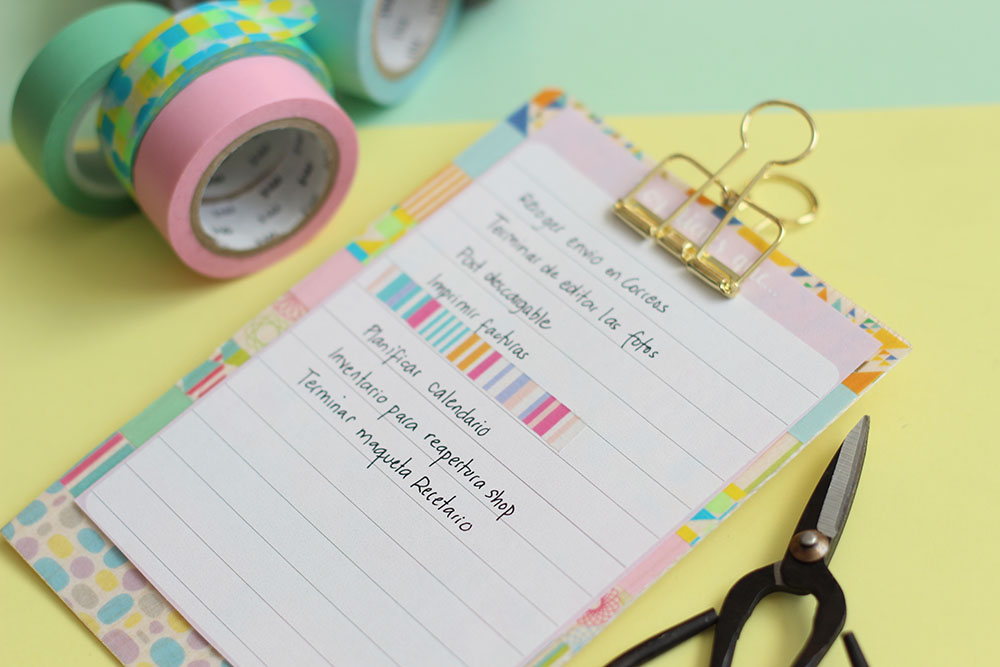 Recoger envío en Correos
Terminar de editar las fotos
Post descargable
Imprimir facturas
Planificar calendario
Inventario para reapertura shop
Terminar maqueta Recetario